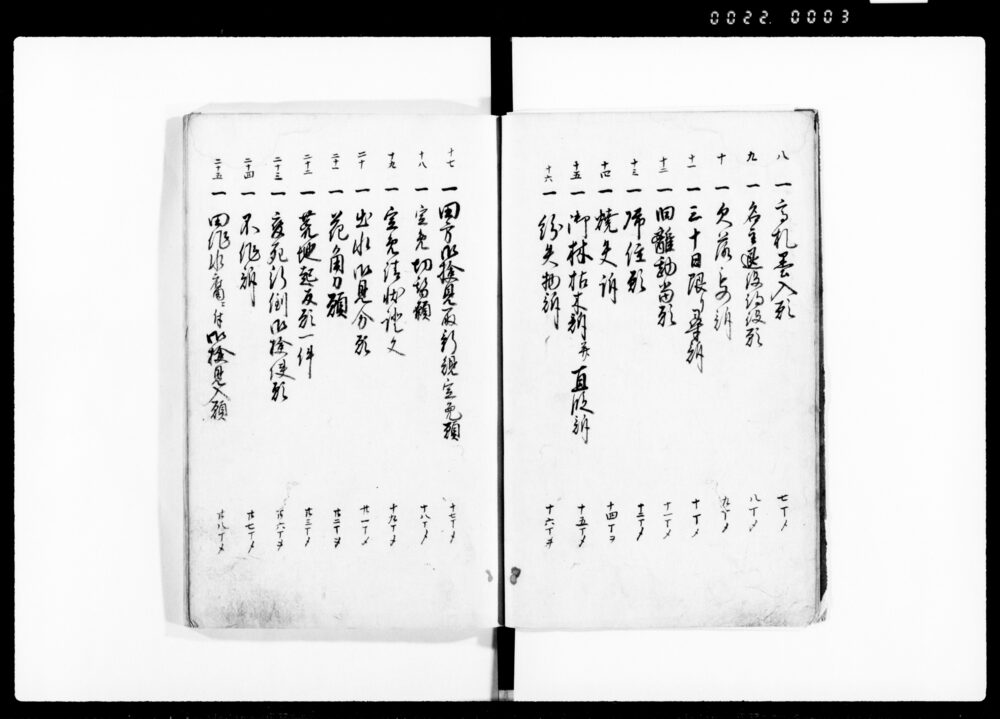 0022 0003
八 一 高札墨入願 七丁メ
九 一 名主退役跡役願 八丁メ
十 一 欠落之訴 九丁メ
十一 一 三十日限り尋訴 十丁メ
十二 一 旧離勘当願 十一丁メ
十三 一 帰住願 十三丁メ
十四 一 焼失訴 十四丁ヲ
十五 一 御林枯木訴并直段訴 十五丁メ
十六 一 紛失物訴 十六丁ヲ
十七 一 田方御検見願新規定免願 十七丁メ
十八 一 定免切替願 十八丁メ
十九 一 定免請状證文 十九丁ヲ
二十 一 出水御見分願 廿一丁メ
二十一 一 花角力願 廿二丁ヲ
二十二 一 荒地起反願一件 廿三丁メ
二十三 一 変死行倒御検使願 廿六丁ヲ
二十四 一 不作訴 廿七丁メ
二十五 一 田作水腐ニ付御検見入願 廿八丁メ